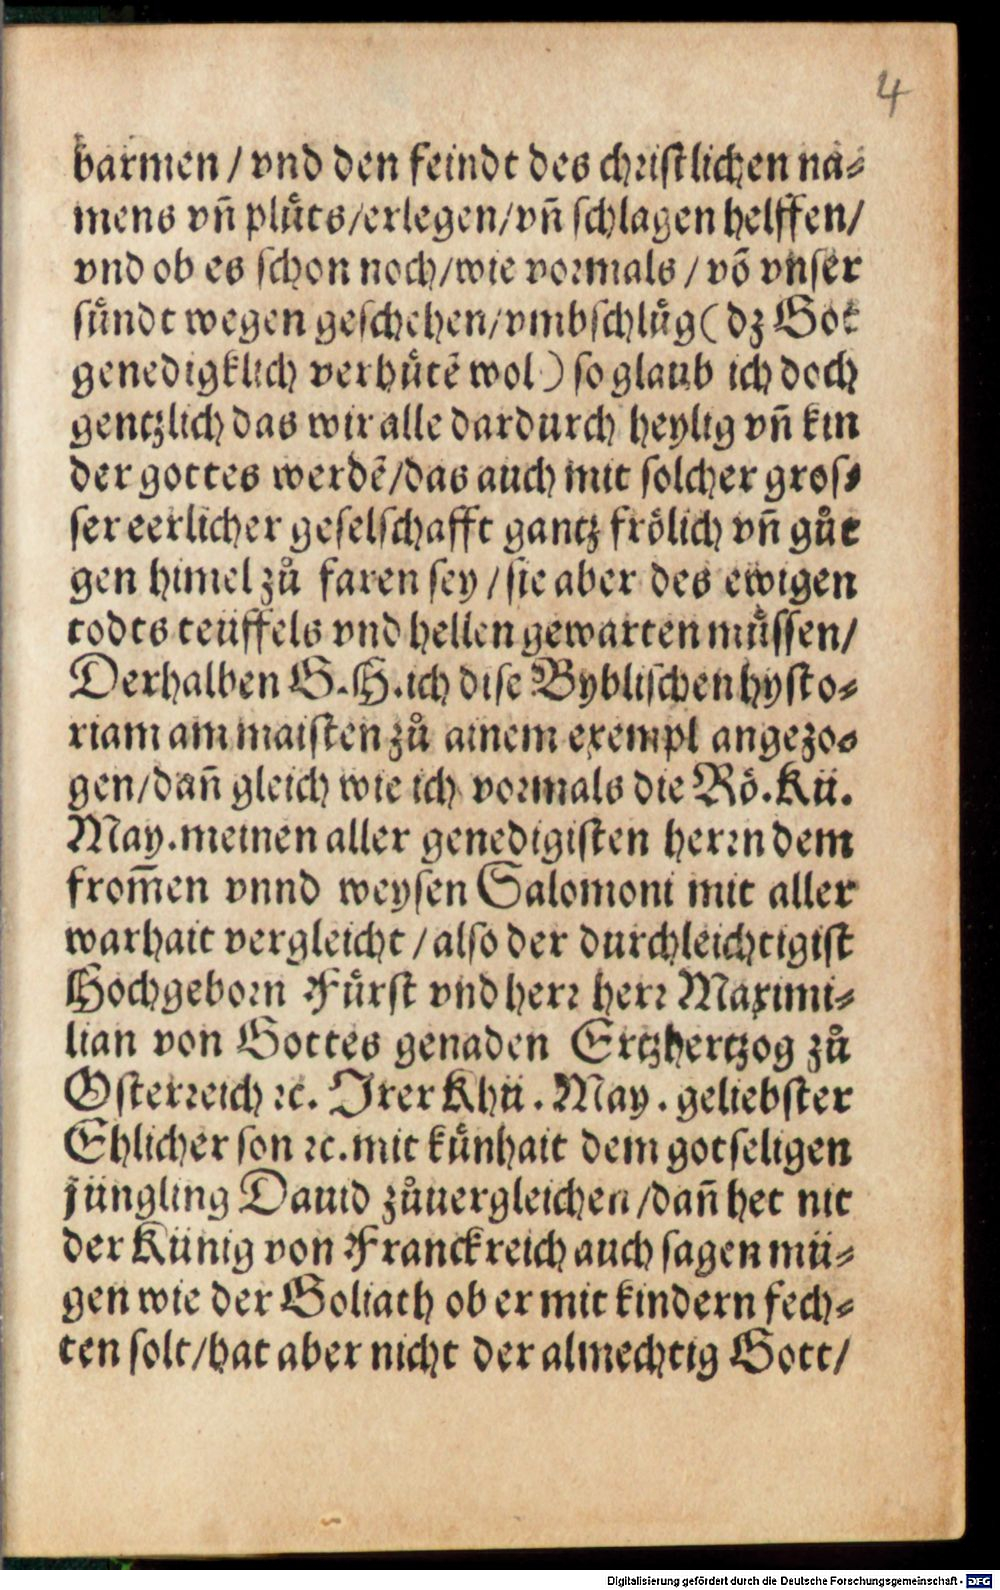 4
barmen / vnd den feindt des christlichen na⸗
mens vñ plůts/erlegen/vñ schlagen helffen/
vnd ob es schon noch/wie vormals / võ vnser
sündt wegen geschehen/vmbschlůg( dz Got
genedigklich verhůtẽ wol) so glaub ich doch
gentzlich das wir alle dardurch heylig vñ kin
der gottes werdẽ/das auch mit solcher gros⸗
ser eerlicher geselschafft gantz frölich vñ gůt
gen himel zů faren sey / sie aber des ewigen
todts teüffels vnd hellen gewarten müssen/
Derhalben G.H.ich dise Byblischen hysto⸗
riam am maisten zů ainem exempl angezo⸗
gen/dañ gleich wie ich vormals die Rö.Kü.
May.meinen aller genedigisten herrn dem
from̃en vnnd weysen Salomoni mit aller
warhait vergleicht / also der durchleichtigist
Hochgeborn Fürst vnd herr herr Maximi⸗
lian von Gottes genaden Ertzhertzog zů
Osterreich ꝛc. Irer Khü. May. geliebster
Ehlicher son ꝛc.mit künhait dem gotseligen
jüngling Dauid zůuergleichen /dañ het nit
der Künig von Franckreich auch sagen mü⸗
gen wie der Goliath ob er mit kindern fech⸗
ten solt/hat aber nicht der almechtig Gott/
Digitalisierung gefördert durch die Deutsche Forschungsgemeinschaft - DFG